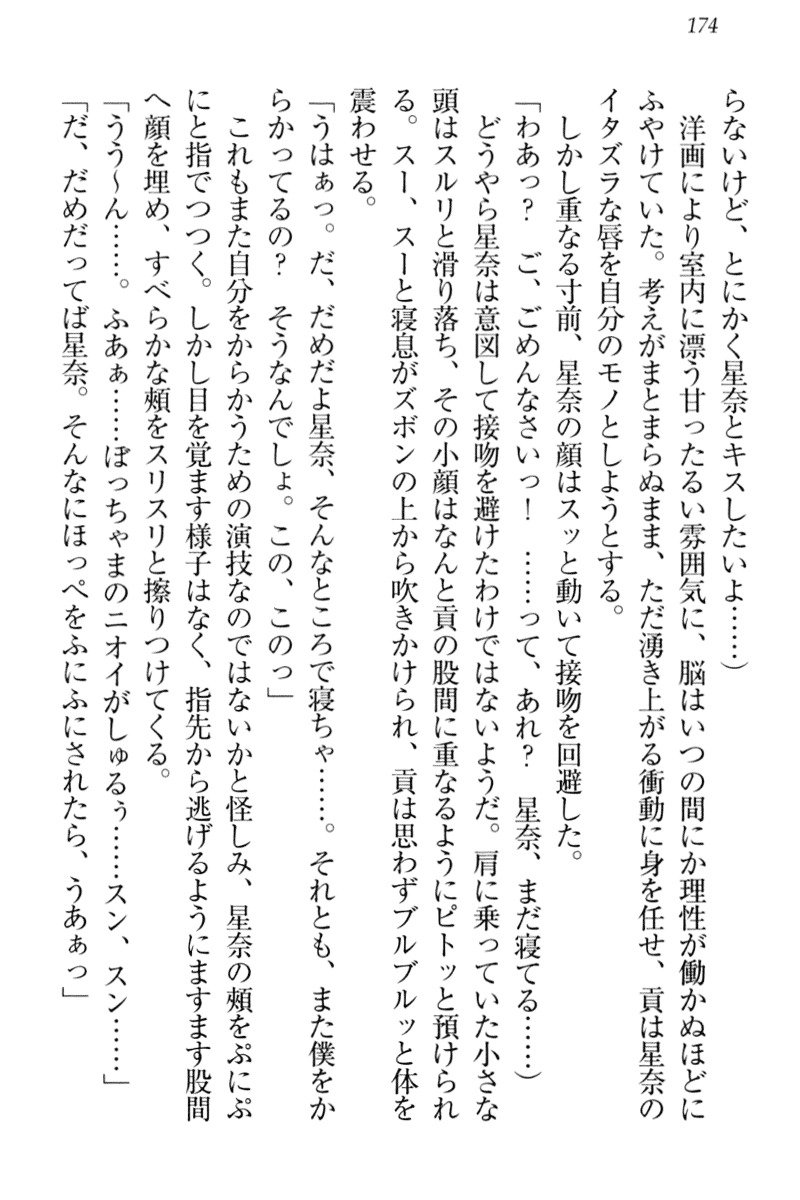 174
らないけど、とにかく星奈とキスしたいよ……）
　洋画により室内に漂う甘ったるい雰囲気に、脳はいつの間にか理性が働かぬほどに
ふやけていた。考えがまとまらぬまま、ただ湧き上がる衝動に身を任せ、貢は星奈の
イタズラな唇を自分のモノとしようとする。
　しかし重なる寸前、星奈の顔はスッと動いて接吻を回避した。
「わあっ？　ご、ごめんなさいっ！　……って、あれ？　星奈、まだ寝てる……）
　どうやら星奈は意図して接吻を避けたわけではないようだ。肩に乗っていた小さな
頭はスルリと滑り落ち、その小顔はなんと貢の股間に重なるようにピトッと預けられ
る。スー、スーと寝息がズボンの上から吹きかけられ、貢は思わずブルブルッと体を
震わせる。
「うはぁっ。だ、だめだよ星奈、そんなところで寝ちゃ……。それとも、また僕をか
らかってるの？　そうなんでしょ。この、このっ」
　これもまた自分をからかうための演技なのではないかと怪しみ、星奈の頬をぷにぷ
にと指でつつく。しかし目を覚ます様子はなく、指先から逃げるようにますます股間
へ顔を埋め、すべらかな頬をスリスリと擦りつけてくる。
「うう～ん……。ふあぁ……ぼっちゃまのニオイがしゅるぅ……スン、スン……」
「だ、だめだってば星奈。そんなにほっぺをふにふにされたら、うあぁっ」